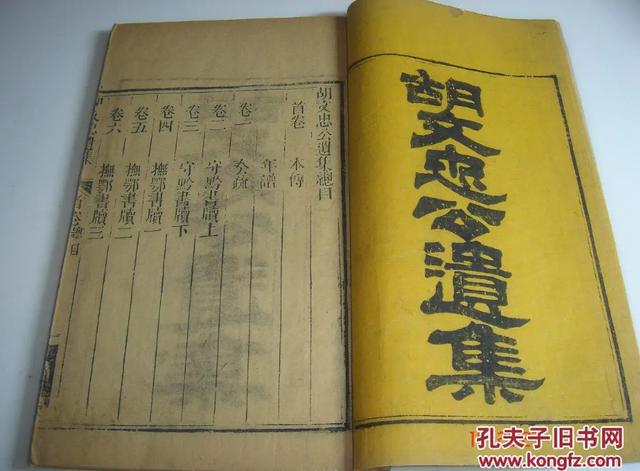 胡文忠公遺集
胡文忠公遺集總目
首卷 本傳
年譜
卷一 奏疏
卷二 守黔書牘上
卷三 守黔書牘下
卷四 撫鄂書牘一
卷五 撫鄂書牘二
卷六 撫鄂書牘三
孔夫子旧书网
kongfz.com